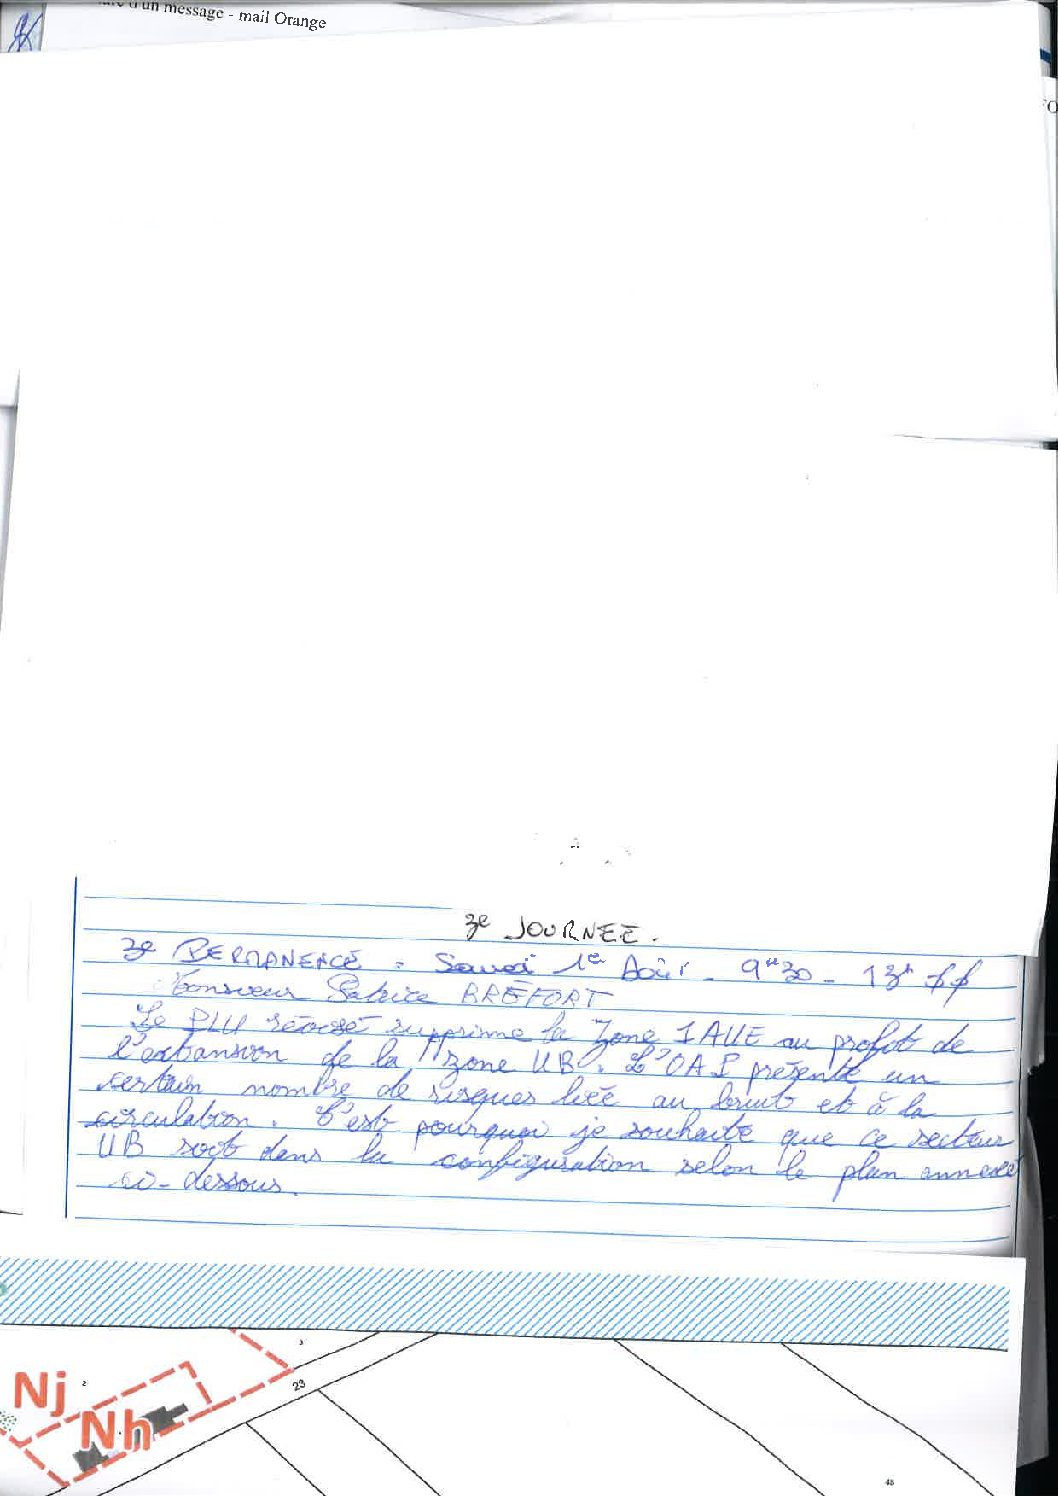 d'un message - mail Orange
3e JOURNEE.
3e PERMANENCE. Samedi 1er Août - 9H30 - 13h
Monsieur Patrice BREFORT
Le PLU révisé supprime la Zone 1AUE au profit de
l'extansion de la zone UB. L'OAP présente un
certain nombre de risques liée au bruit et à la
circulation. C'est pourquoi je souhaite que ce secteur
UB soit dans la configuration selon le plan annexé
ci-dessous.
Nj
2
3
23
Nh
48